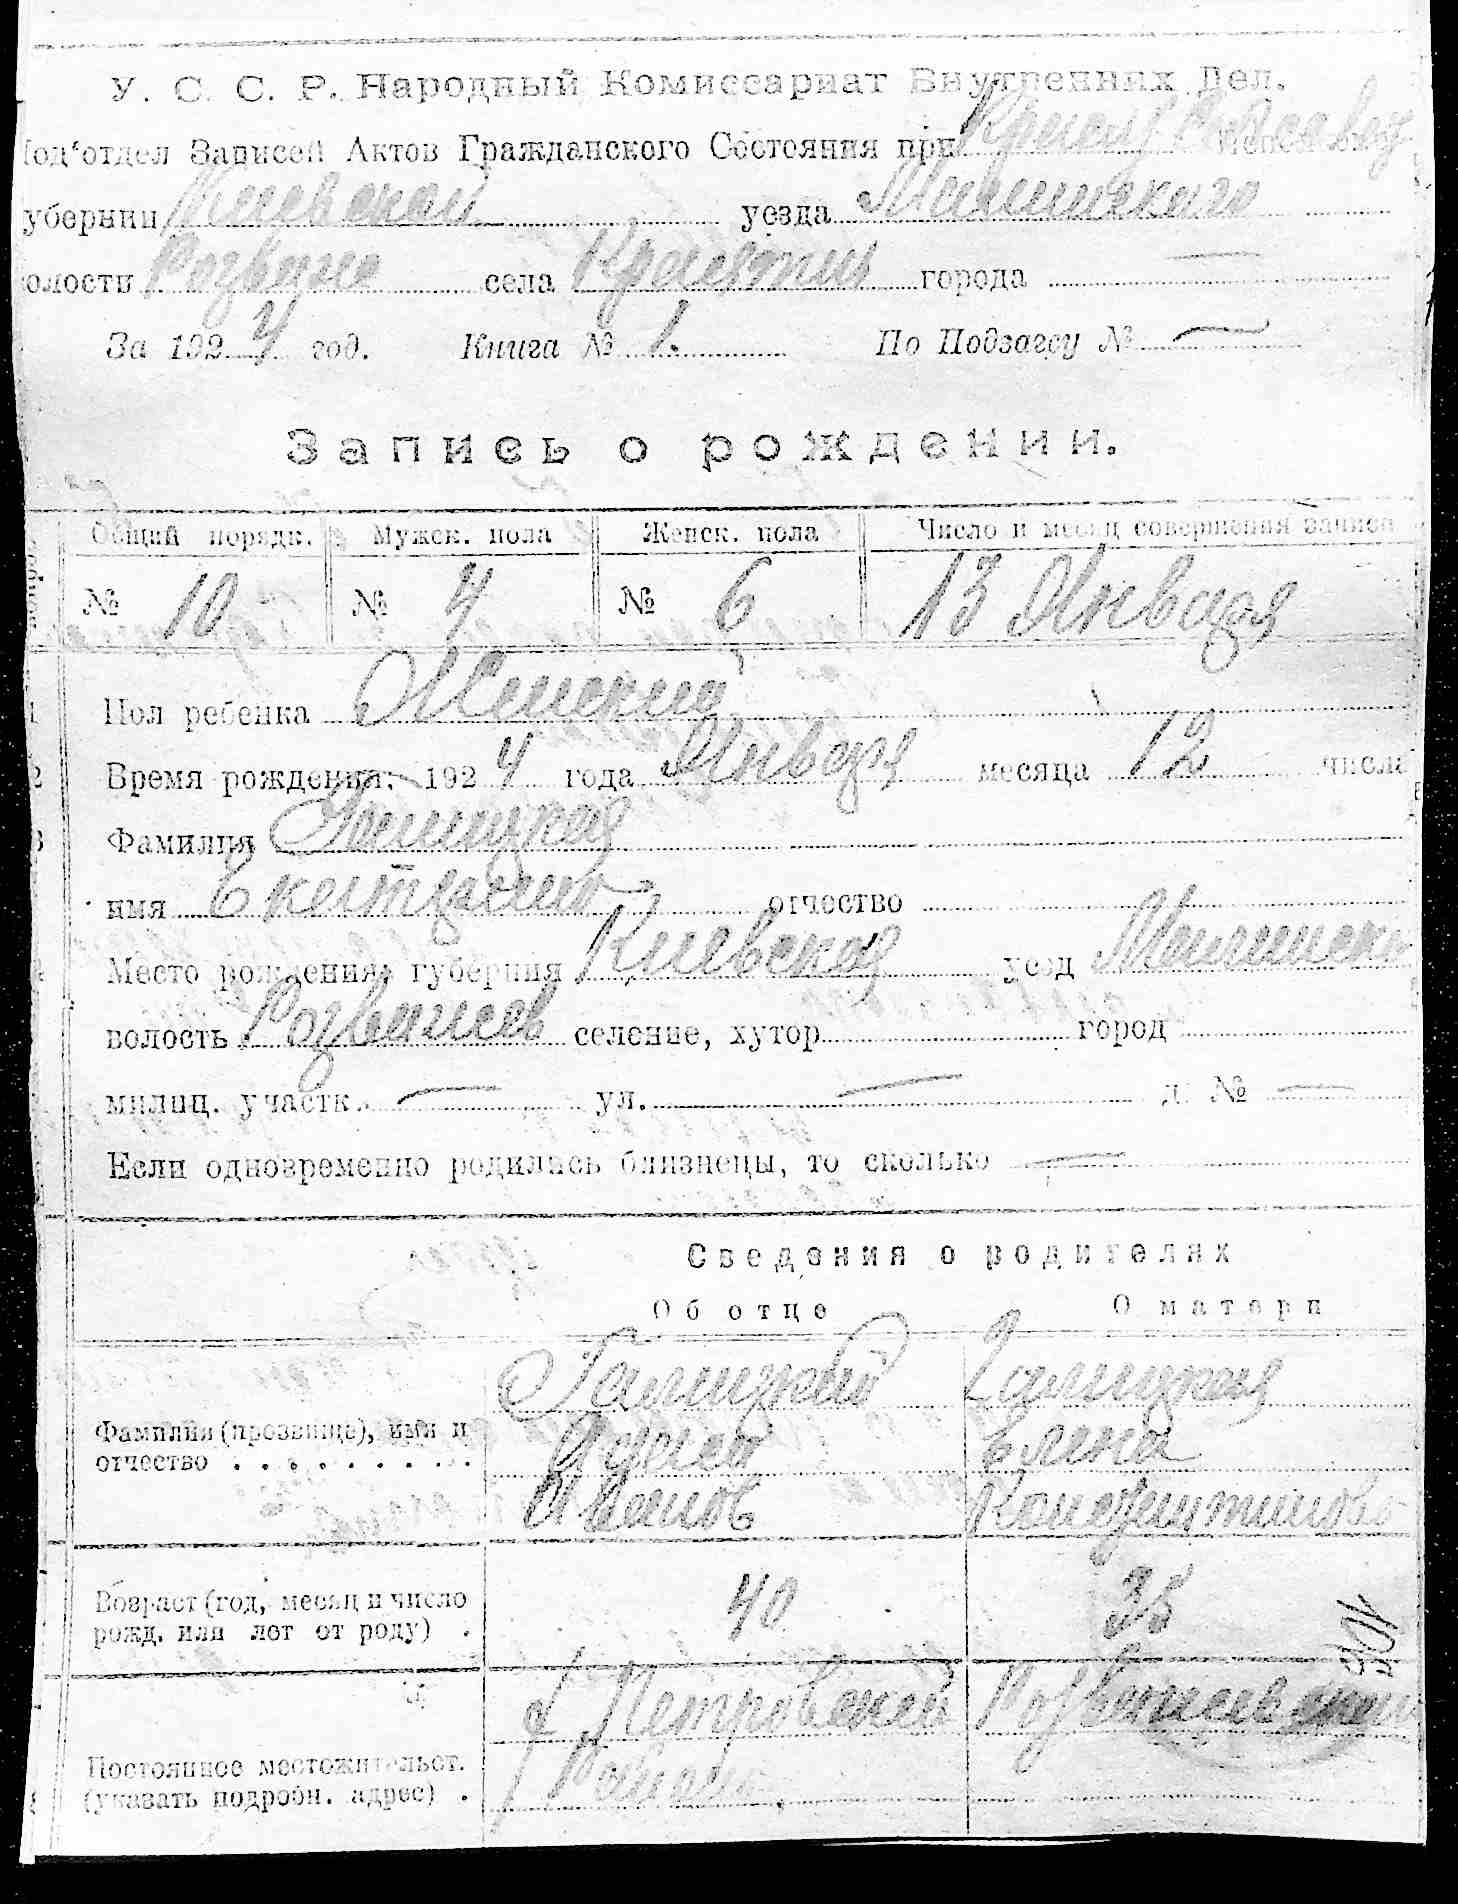 У. С. С. Р. Народный Комиссариат Внутренних Дел.
Под'отдел Записей Актов Гражданского Состояния при
губернии Киевской уезда
волости села города —
За 1924 год. Книга № 1. По Подзагсу № —
Запись о рождении.
Общий порядк. Мужск. пола Женск. пола Число и месяц совершения записи
№ 10 № 4 № 6 13 Января
1 Пол ребенка Женский
2 Время рождения: 1924 года Январ месяца 12 числа
3 Фамилия Галицкая
имя Екатерина отчество
Место рождения: губерния Киевская уезд
волость селение, хутор город
милиц. участк. — ул. — д. № —
Если одновременно родились близнецы, то сколько —
Сведения о родителях
Об отце О матери
Галицкий Галицкая
Фамилия (прозвище), имя и
отчество . . . . . . . . . Елена
Иванов Константинов
Возраст (год, месяц и число
рожд. или лет от роду) . 40 35
Петровской
Постоянное местожительст.
(указать подробн. адрес) .